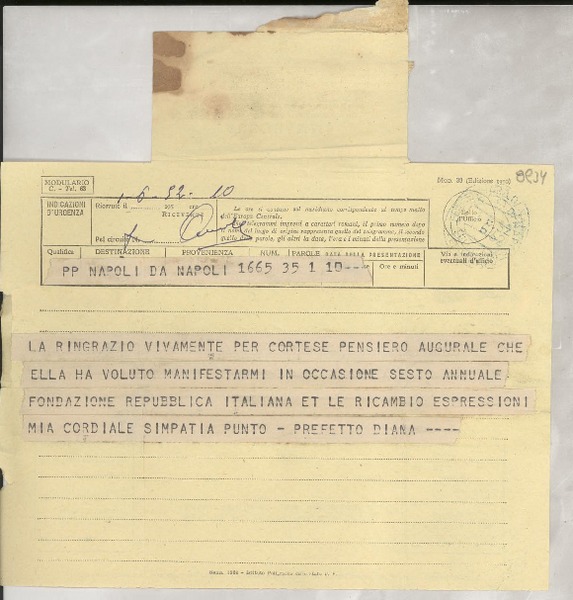 MODULARIO
C. - Tel. 63
Mod. 30 (Edizione
8934
INDICAZIONI
D'URGENZA
Ricevuto il 1-6-52-10
RICEVENTE
Pel circuito N.
Le ore si contano sul meridiano corrispondente al tempo medio
dell'Europa Centrale.
Nei telegrammi impressi a caratteri romani, il primo numero dopo
il nome del luogo di origine rappresenta quello del telegramma, il secondo
quello delle parole, gli altri la data, l'ora e i minuti della presentazione
Bollo
d'Ufficio
Qualifica DESTINAZIONE PROVENIENZA NUM. PAROLE DATA DELLA PRESENTAZIONE
Ore e minuti
Via e indicazioni
eventuali d'ufficio
PP NAPOLI DA NAPOLI 1665 35 1 10---
LA RINGRAZIO VIVAMENTE PER CORTESE PENSIERO AUGURALE CHE
ELLA HA VOLUTO MANIFESTARMI IN OCCASIONE SESTO ANNUALE
FONDAZIONE REPUBBLICA ITALIANA ET LE RICAMBIO ESPRESSIONI
MIA CORDIALE SIMPATIA PUNTO - PREFETTO DIANA ----